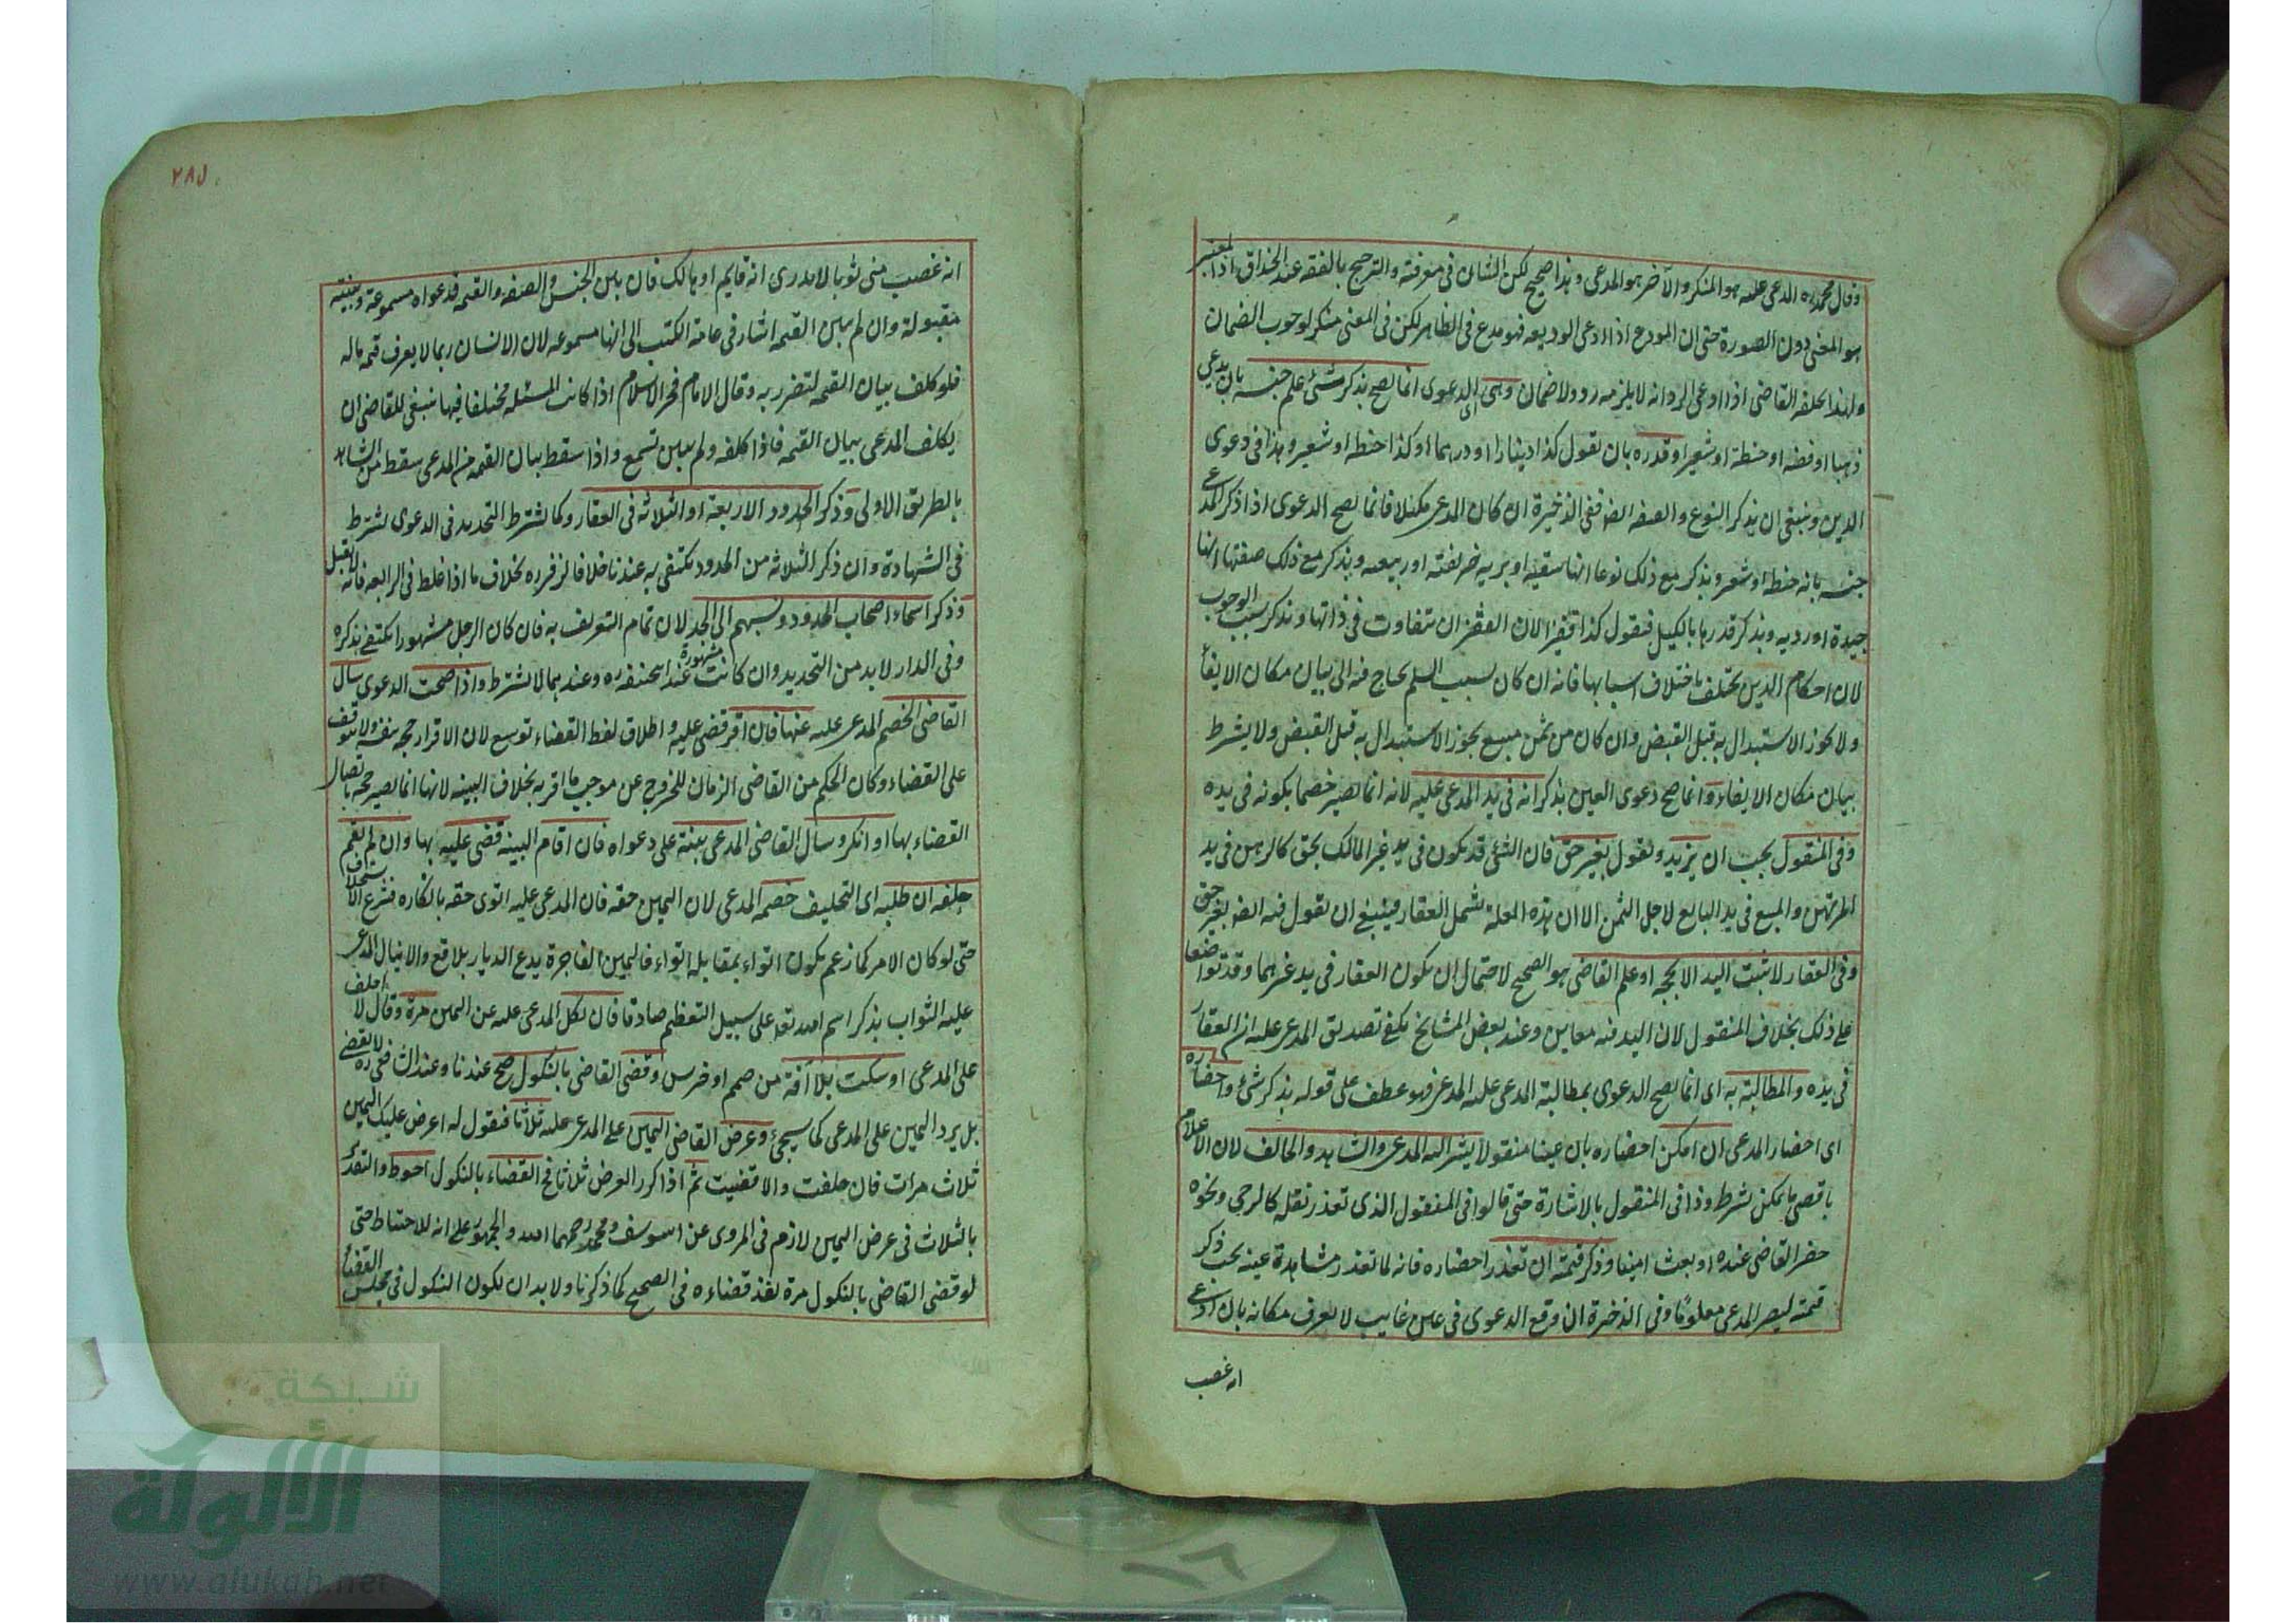 وقال محمد ره المدعى عليه هو المنكر والآخر هو المدعى وهذا صحيح لكن الشان فى معرفته والترجيح بالفقه عند الحذاق اذا المعتبر
هو المعنى دون الصورة حتى ان المودع اذا ادعى الوديعه فهو مدع فى الظاهر لكن فى المعنى منكر لوجوب الضمان
ولهذا يحلفه القاضى اذا ادعى الرد انه لا يلزمه رد ولا ضمان وهى اى الدعوى انما يصح بذكر شئ علم جنسه بان يدعى
ذهبا او فضه او حنطة او شعير او قدره بان يقول كذا دينارا او درهما او كذا حنطه او شعير وهذا فى دعوى
الدين وينبغى ان يذكر النوع والصفه ايضا ففى الذخيرة ان كان المدعى مكيلا فانما يصح الدعوى اذا ذكر المدعى
جنسه بانه حنطه او شعير ويذكر مع ذلك نوعا انها سقيه او بريه خريفته او ربيعيه ويذكر مع ذلك صفتها انها
جيدة او رديه ويذكر قدرها بالكيل فيقول كذا قفيزا لان القفزان تتفاوت فى ذاتها ويذكر سبب الوجوب
لان احكام الدين تختلف باختلاف اسبابها فانه ان كان بسبب السلم يحتاج فيه الى بيان مكان الايفأ
ولا يجوز الاستبدال به قبل القبض وان كان من ثمن مبيع يجوز الاستبدال به قبل القبض ولا يشرط
بيان مكان الايفاء وانما صح دعوى العين بذكر انه فى يد المدعى عليه لانه انما يصير خصما بكونه فى يده
وفى المنقول يجب ان يزيد ويقول بغير حق فان الشئ قد يكون فى يد غير المالك بحق كالرهن فى يد
المرتهن والمبيع فى يد البايع لاجل الثمن الا ان هذه العلة تشمل العقار فينبغى ان يقول فيه ايضا بغير حق
وفى العقار لا يثبت اليد الا بحجه او علم القاضى هو الصحيح لاحتمال ان يكون العقار فى يد غيرهما وقد تواضعا
على ذلك بخلاف المنقول لان اليد فيه معاين وعند بعض المشايخ يكفى تصديق المدعى عليه ان العقار
فى يده والمطالبة به اى انما يصح الدعوى بمطالبة المدعى عليه المدعى فهو عطف على قوله بذكر شئ واحضاره
اى احضار المدعى ان امكن احضاره بان عينا منقولا يشير اليه المدعى والشاهد والحالف لان الاعلام
باقصى ما يمكن شرط وذا فى المنقول بالاشارة حتى قالوا فى المنقول الذى تعذر نقله كالرحى ونحوه
حضر القاضى عنده او بعث امينا وذكر قيمته ان تعذر احضاره فانه لما تعذر مشاهدة عينه يجب ذكر
قيمته ليصير المدعى معلومًا وفى الذخيرة ان وقع الدعوى فى عين غايب لا يعرف مكانه بان ادعى
انه غصب
٢٨٥
انه غصب منى ثوبا لا يدرى انه قايم او هالك فان بين الجنس والصفه والقيمه فدعواه مسموعة وبينته
مقبولة وان لم يبين القيمه اشار فى عامة الكتب الى انها مسموعه لان الانسان ربما لا يعرف قيمه ماله
فلو كلف بيان القيمه لتضرر به وقال الامام فخر الاسلام اذا كانت المسئله مختلفا فيها ينبغى للقاضى ان
يكلف المدعى بيان القيمه فاذا كلفه ولم يبين تسمع واذا سقط بيان القيمه من المدعى سقط من الشاهد
بالطريق الاولى وذكر الحدود الاربعة او الثلاثه فى العقار وكما يشترط التحديد فى الدعوى يشترط
فى الشهادة وان ذكر الثلاثه من الحدود يكتفى به عندنا خلافا لزفر ره بخلاف ما اذا غلط فى الرابعه فانه لا يقبل
وذكر اسماء اصحاب الحدود ونسبهم الى الجد لان تمام التعريف به فان كان الرجل مشهورا يكتفى بذكره
وفى الدار لا بد من التحديد وان كانت مشهورة عند ابى حنيفه ره وعندهما لا يشترط واذا صحت الدعوى سال
القاضى الخصم المدعى عليه عنها فان اقر قضى عليه واطلاق لفظ القضاء توسع لان الاقرار حجه بنفسه ولا يتوقف
على القضاء وكان الحكم من القاضى الزمان للخروج عن موجب ما اقر به بخلاف البينه لانها انما يصير حجه باتصال
القضاء بها او انكر وسال القاضى المدعى بينة على دعواه فان اقام البينه قضى عليه بها وان لم يقم
حلفه ان طلبه اى التحليف خصمه المدعى لان اليمين حقه فان المدعى عليه اتوى حقه بانكاره فشرع الاستحلاف
حتى لو كان الامر كما زعم يكون اتواء بمقابله اتواء فاليمين الفاجرة يدع الديار بلاقع والا ينال المدعى
عليه الثواب بذكر اسم الله تعالى على سبيل التعظيم صادقا فان نكل المدعى عليه عن اليمين مرة وقال لا احلف
على المدعى او سكت بلا آفة من صمم او خرس وقضى القاضى بالنكول صح عندنا وعند الشافعى ره لا يقضى
بل يرد اليمين على المدعى كما سيجئ وعرض القاضى اليمين على المدعى عليه ثلاثا فيقول له اعرض عليك اليمين
ثلاث مرات فان حلفت والا قضيت ثم اذا كرر العرض ثلاثا فى القضاء بالنكول احوط والتقدير
بالثلاث فى عرض اليمين لازم فى المروى عن ابى يوسف ومحمد رحمهما الله والجمهور على انه للاحتياط حتى
لو قضى القاضى بالنكول مرة نفذ قضاءه فى الصحيح كما ذكرنا ولا بد ان يكون النكول فى مجلس القضأ
شبكة
الألوكة
www.alukah.net